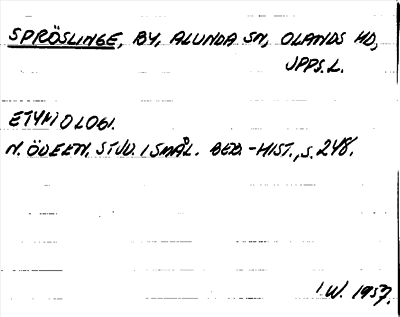 SPRÖSLINGE, BY, ALUNDA SN, OLANDS HD,
UPPS.L.
ETYMOLOGI.
N. ÖDEEN, STUD. I SMÅL. BEB.-HIST., S. 248.
I.W. 1957.